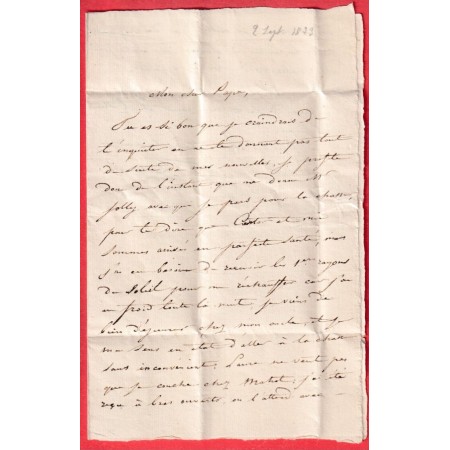 2 Sept. 1833
Mon cher Papa,
Tu es si bon que je craindrais de
t'inquiéter en ne te donnant pas tout
de suite de mes nouvelles, je profite
donc de l'instant que me donne Mr
Jolly avec que je pars pour la chasse
pour te dire que et moi
sommes arrivés en parfaite santé, mais
j'ai eu besoin de recevoir les 1ers rayons
du Soleil pour me réchauffer car j'ai
eu froid toute la nuit. Je viens de
bien déjeuner chez mon oncle, et je
me sens en état d'aller à la chasse
sans inconvénient. ne veut pas
que je couche chez j'ai été
reçu à bras ouverts, on t'attend avec